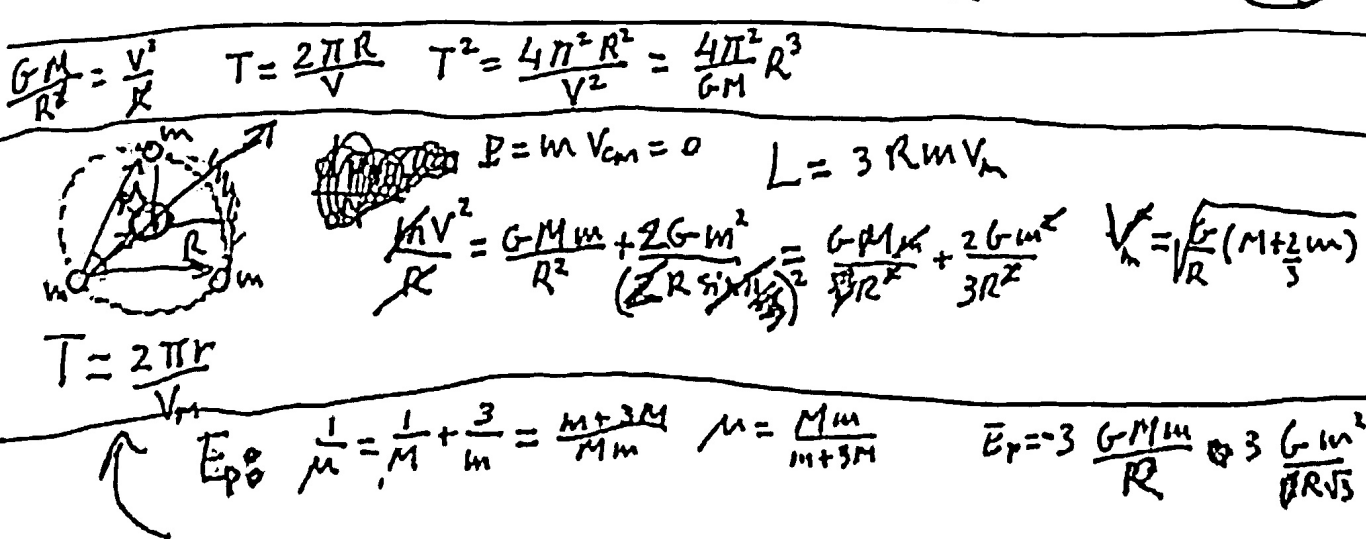 GM/R² = V²/R T = 2πR/V T² = 4π²R²/V² = 4π²/GM R³
m
P = m V_cm = 0 L = 3 R m V_m
R
m m
mV²/R = GMm/R² + 2Gm²/(2R sin)² = GMm/R² + 2Gm²/3R² V_m = √(G/R (M + 2/3 m))
T = 2πr/V_M
E_p: 1/μ = 1/M + 3/m = m+3M/Mm μ = Mm/m+3M E_p = -3 GMm/R 3 Gm²/R√3